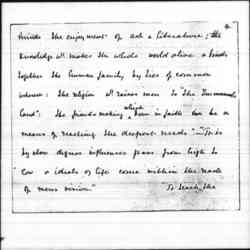 the enjoyment of art & literature; the
knowledge wh. makes the whole world alive & binds
together the human family by ties of common
interest: the religion wh. raises men to the Immanent
God": the friends making which is in faith can be a
means of reaching the deepest needs" - "It is
by slow degrees influences pass from high to
low & ideals of life come within the reach
of mens vision" To teach, the